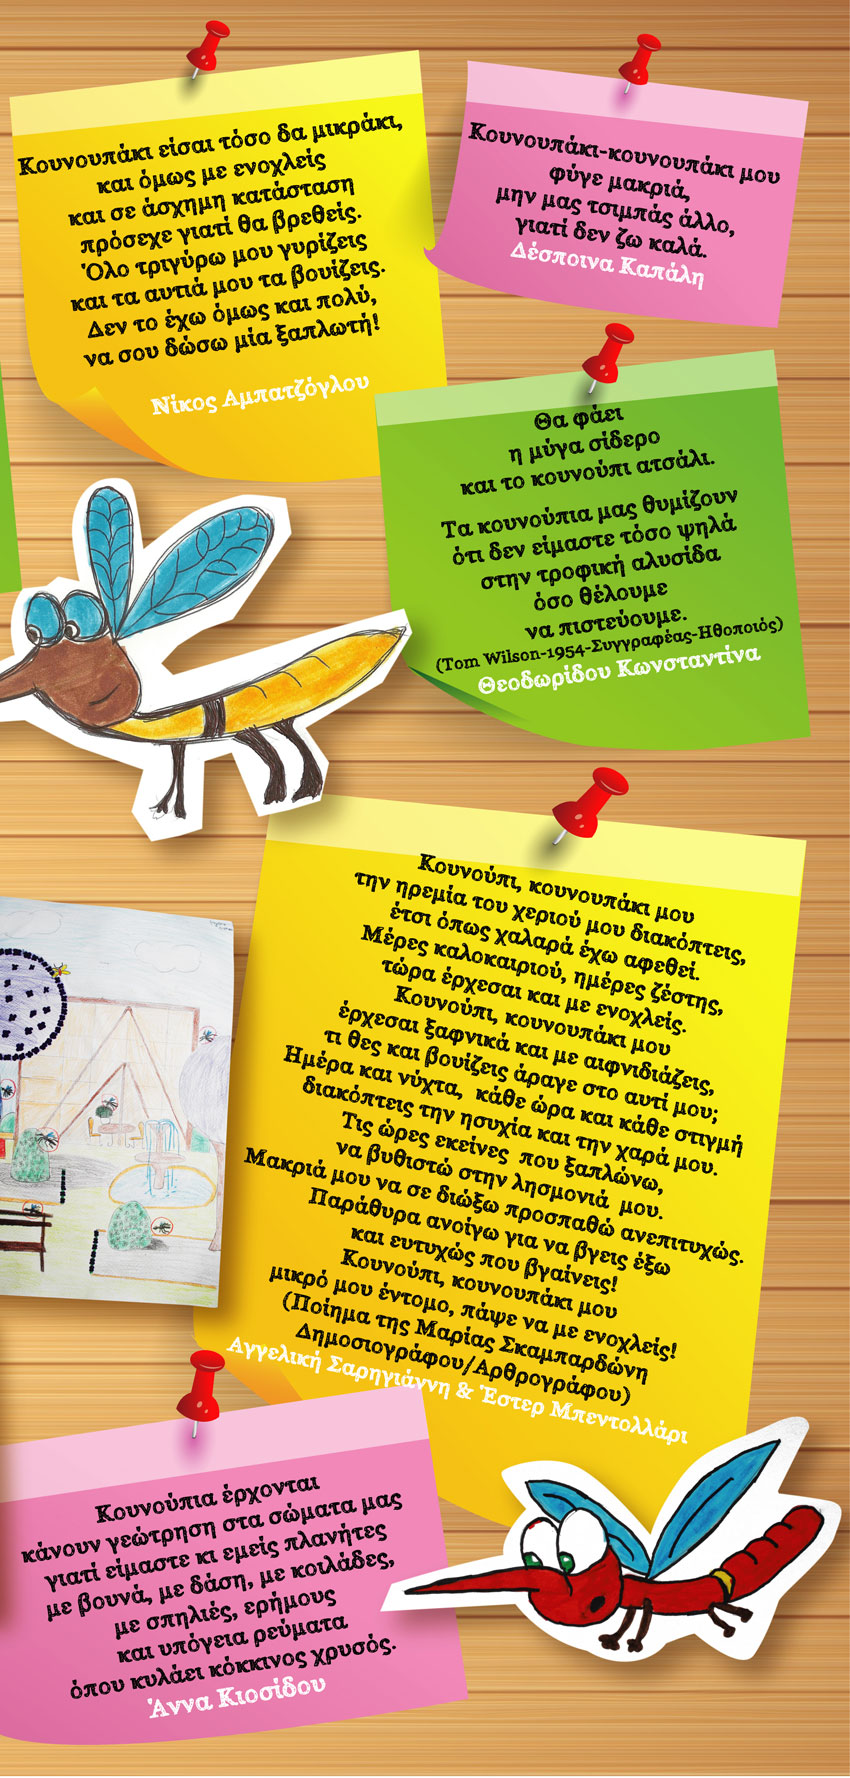 Κουνουπάκι είσαι τόσο δα μικράκι,
και όμως με ενοχλείς
και σε άσχημη κατάσταση
πρόσεχε γιατί θα βρεθείς.
Όλο τριγύρω μου γυρίζεις
και τα αυτιά μου τα βουίζεις.
Δεν το έχω όμως και πολύ,
να σου δώσω μία ξαπλωτή!
Νίκος Αμπατζόγλου
Κουνουπάκι-κουνουπάκι μου
φύγε μακριά,
μην μας τσιμπάς άλλο,
γιατί δεν ζω καλά.
Δέσποινα Καπάλη
Θα φάει
η μύγα σίδερο
και το κουνούπι ατσάλι.
Τα κουνούπια μας θυμίζουν
ότι δεν είμαστε τόσο ψηλά
στην τροφική αλυσίδα
όσο θέλουμε
να πιστεύουμε.
(Tom Wilson-1954-Συγγραφέας-Ηθοποιός)
Θεοδωρίδου Κωνσταντίνα
Κουνούπι, κουνουπάκι μου
την ηρεμία του χεριού μου διακόπτεις,
έτσι όπως χαλαρά έχω αφεθεί.
Μέρες καλοκαιριού, ημέρες ζέστης,
τώρα έρχεσαι και με ενοχλείς.
Κουνούπι, κουνουπάκι μου
έρχεσαι ξαφνικά και με αιφνιδιάζεις,
τι θες και βουίζεις άραγε στο αυτί μου;
Ημέρα και νύχτα, κάθε ώρα και κάθε στιγμή
διακόπτεις την ησυχία και την χαρά μου.
Τις ώρες εκείνες που ξαπλώνω,
να βυθιστώ στην λησμονιά μου.
Μακριά μου να σε διώξω προσπαθώ ανεπιτυχώς.
Παράθυρα ανοίγω για να βγεις έξω
και ευτυχώς που βγαίνεις!
Κουνούπι, κουνουπάκι μου
μικρό μου έντομο, πάψε να με ενοχλείς!
(Ποίημα της Μαρίας Σκαμπαρδώνη
Δημοσιογράφου/Αρθρογράφου)
Αγγελική Σαρηγιάννη & Έστερ Μπεντολλάρι
Κουνούπια έρχονται
κάνουν γεώτρηση στα σώματα μας
γιατί είμαστε κι εμείς πλανήτες
με βουνά, με δάση, με κοιλάδες,
με σπηλιές, ερήμους
και υπόγεια ρεύματα
όπου κυλάει κόκκινος χρυσός.
Άννα Κιοσίδου